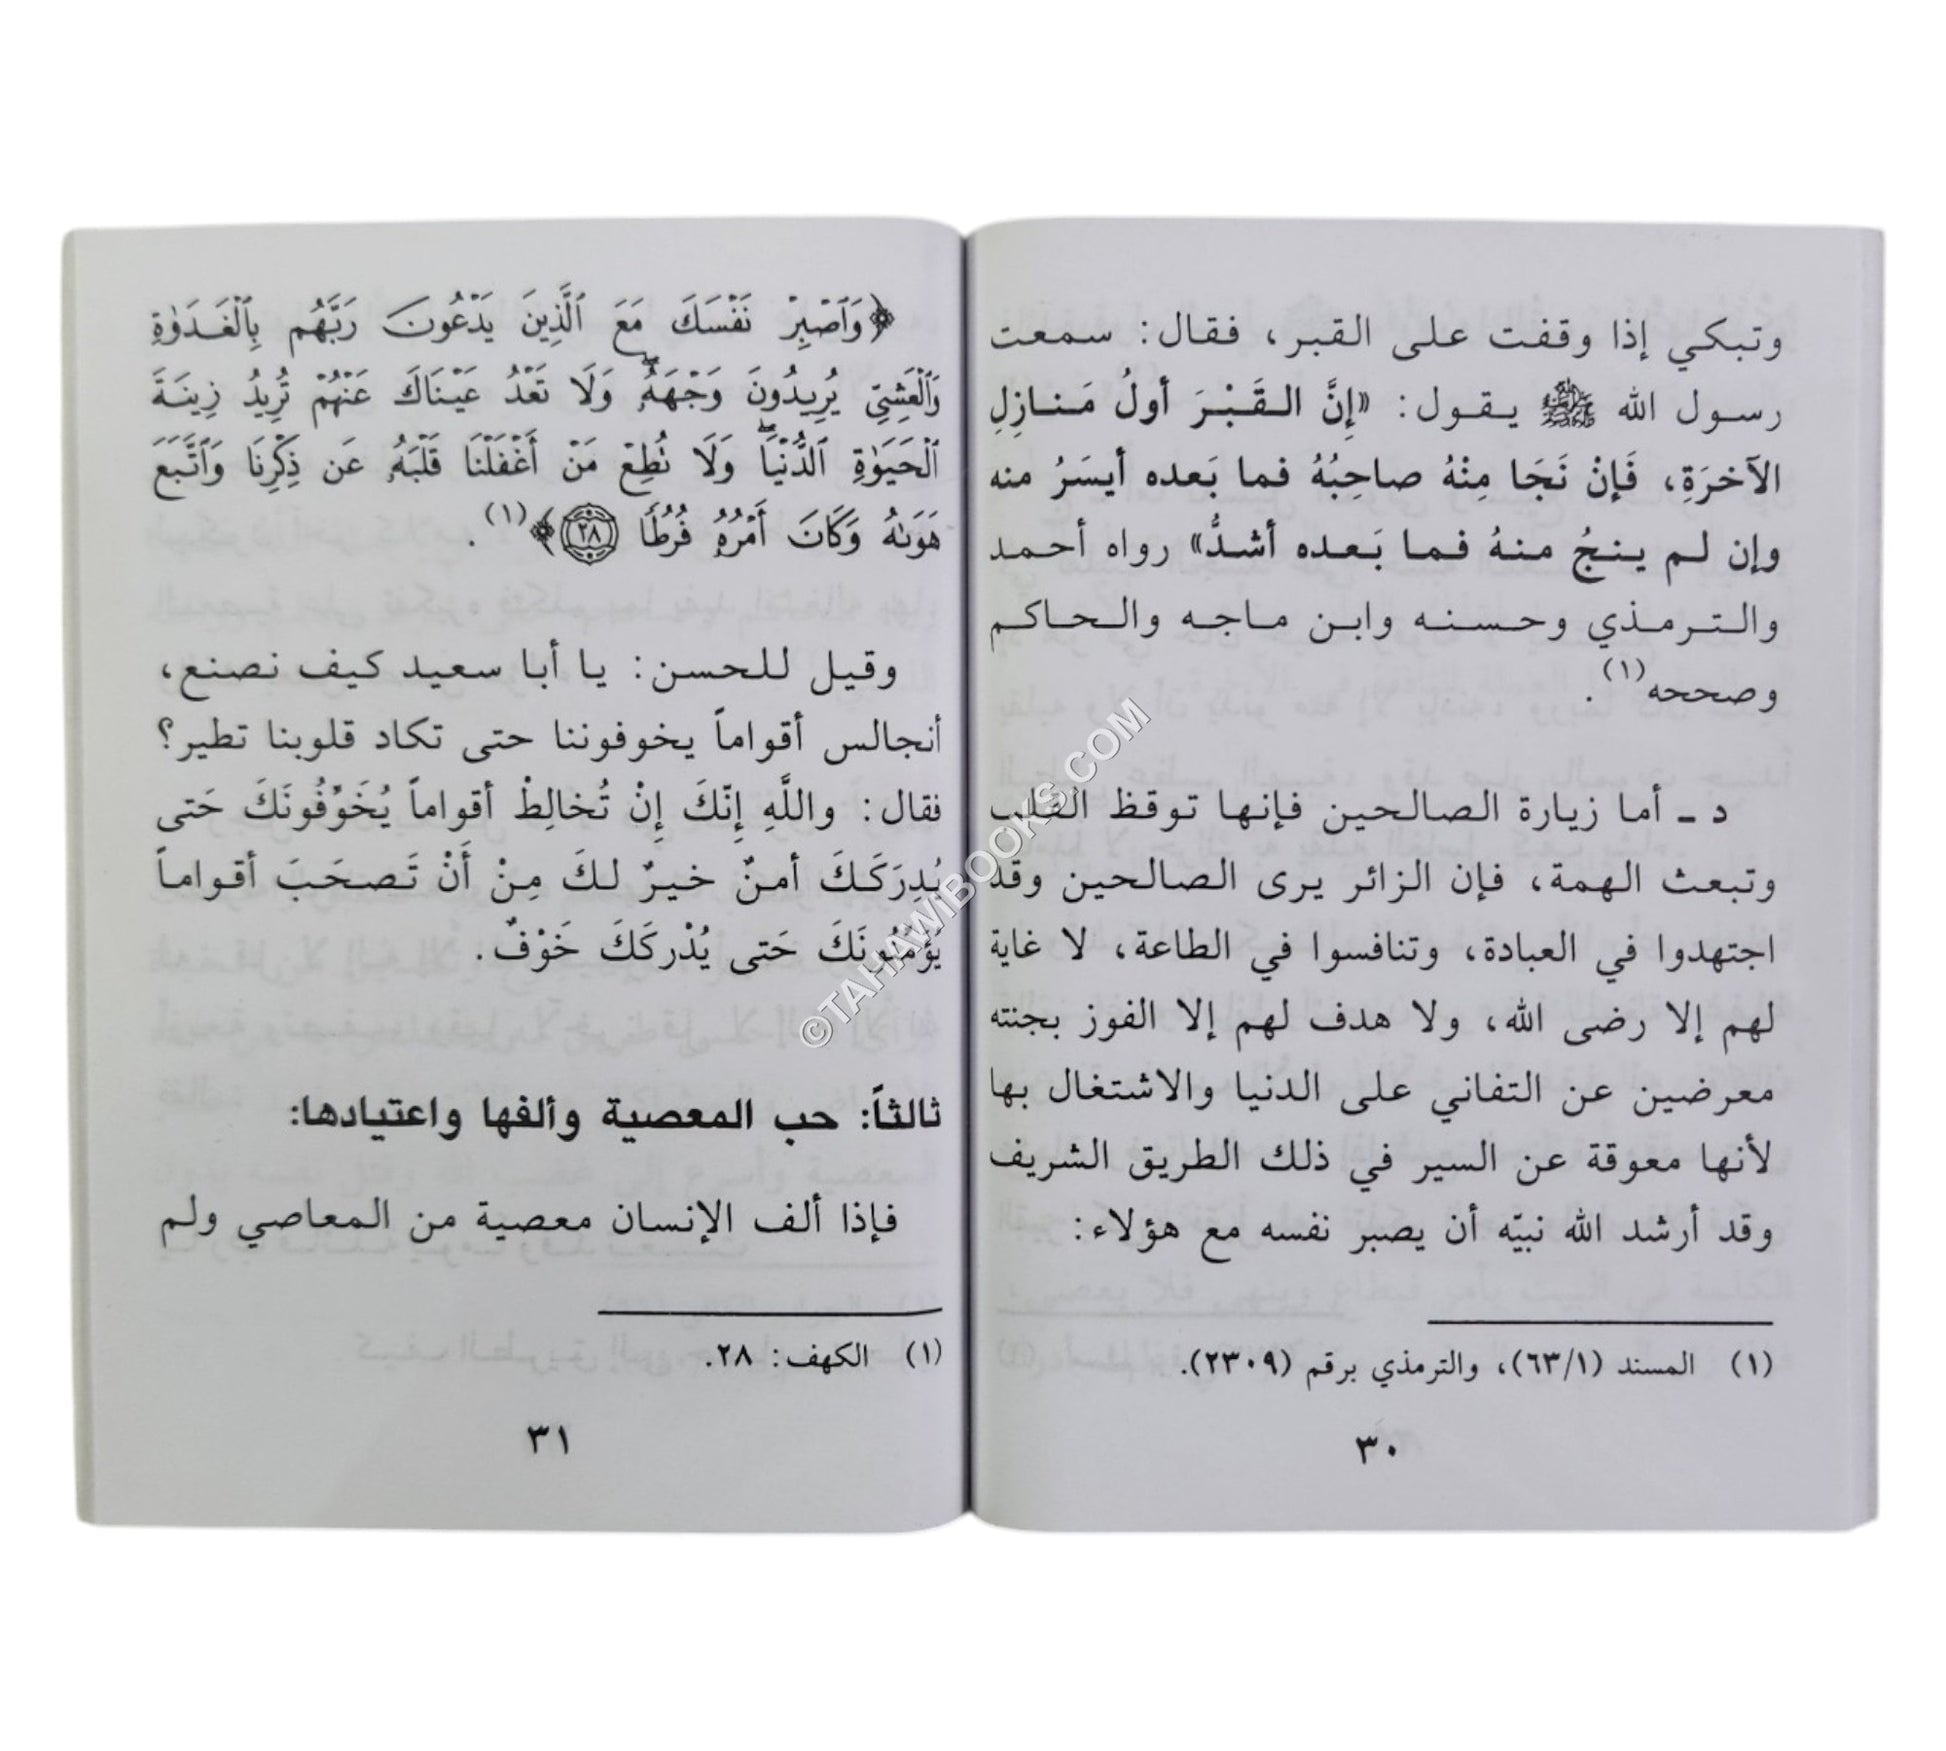 وتبكي إذا وقفت على القبر، فقال: سمعت
رسول الله ﷺ يقول: «إِنَّ القَبْرَ أولُ مَنازِلِ
الآخرَةِ، فَإنْ نَجَا مِنْهُ صاحِبُهُ فما بَعده أيسَرُ منه
وإن لم ينجُ منهُ فما بَعده أشدُّ» رواه أحمد
والترمذي وحسنه وابن ماجه والحاكم
وصححه(١).
د ـ أما زيارة الصالحين فإنها توقظ القلب
وتبعث الهمة، فإن الزائر يرى الصالحين وقد
اجتهدوا في العبادة، وتنافسوا في الطاعة، لا غاية
لهم إلا رضى الله، ولا هدف لهم إلا الفوز بجنته
معرضين عن التفاني على الدنيا والاشتغال بها
لأنها معوقة عن السير في ذلك الطريق الشريف
وقد أرشد الله نبيّه أن يصبر نفسه مع هؤلاء:
(١) المسند (٦٣/١)، والترمذي برقم (٢٣٠٩).
٣٠
﴿وَٱصْبِرْ نَفْسَكَ مَعَ ٱلَّذِينَ يَدْعُونَ رَبَّهُم بِٱلْغَدَوٰةِ
وَٱلْعَشِيِّ يُرِيدُونَ وَجْهَهُۥۖ وَلَا تَعْدُ عَيْنَاكَ عَنْهُمْ تُرِيدُ زِينَةَ
ٱلْحَيَوٰةِ ٱلدُّنْيَاۖ وَلَا نُطِعْ مَنْ أَغْفَلْنَا قَلْبَهُۥ عَن ذِكْرِنَا وَٱتَّبَعَ
هَوَىٰهُ وَكَانَ أَمْرُهُۥ فُرُطًا ٢٨﴾(١).
وقيل للحسن: يا أبا سعيد كيف نصنع،
أنجالس أقواماً يخوفوننا حتى تكاد قلوبنا تطير؟
فقال: واللَّهِ إنّكَ إنْ تُخالِطْ أقواماً يُخَوِّفُونَكَ حَتى
يُدِرَكَكَ أمنٌ خيرٌ لكَ مِنْ أَنْ تَصحَبَ أقواماً
يُؤَمِّنُونَكَ حَتى يُدْركَكَ خَوْفٌ.
ثالثاً: حب المعصية وألفها واعتيادها:
فإذا ألف الإنسان معصية من المعاصي ولم
(١) الكهف: ٢٨.
٣١
©TAHAWIBOOKS.COM